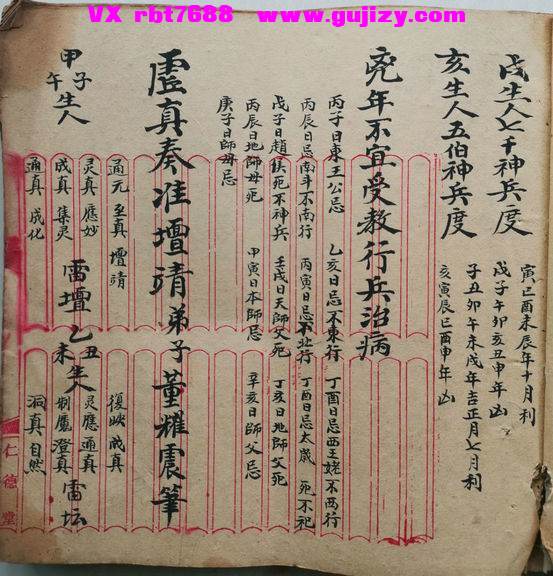 VX rbt7688 www.gujizy.com
戌生人七千神兵度
寅巳酉未辰年十月利
戊子午卯亥丑申年凶
亥生人五伯神兵度
子丑卯午未戌年吉正月七月利
亥寅辰巳酉申年凶
兇年不宜受教行兵治病
丙子日東王公忌 乙亥日忌不東行 丁酉日忌西王姥不西行
丙辰日忌南斗不南行 丙寅日忌不北行 丁酉日忌太歲 死不祀
戊子日趙侯死不神兵 壬戌日天師父死 丁亥日地師父死
丙辰日地師母死 甲寅日本師忌 辛亥日師父忌
庚子日師母忌
虛真奏准壇靖弟子董耀震筆
通元 至真 壇靖 復映 成真
甲子午生人
灵真 應妙 灵應 通真
成真 集灵 制魔 澄真
通真 成化 洞真 自然
雷壇 乙丑未生人 雷坛
仁德堂